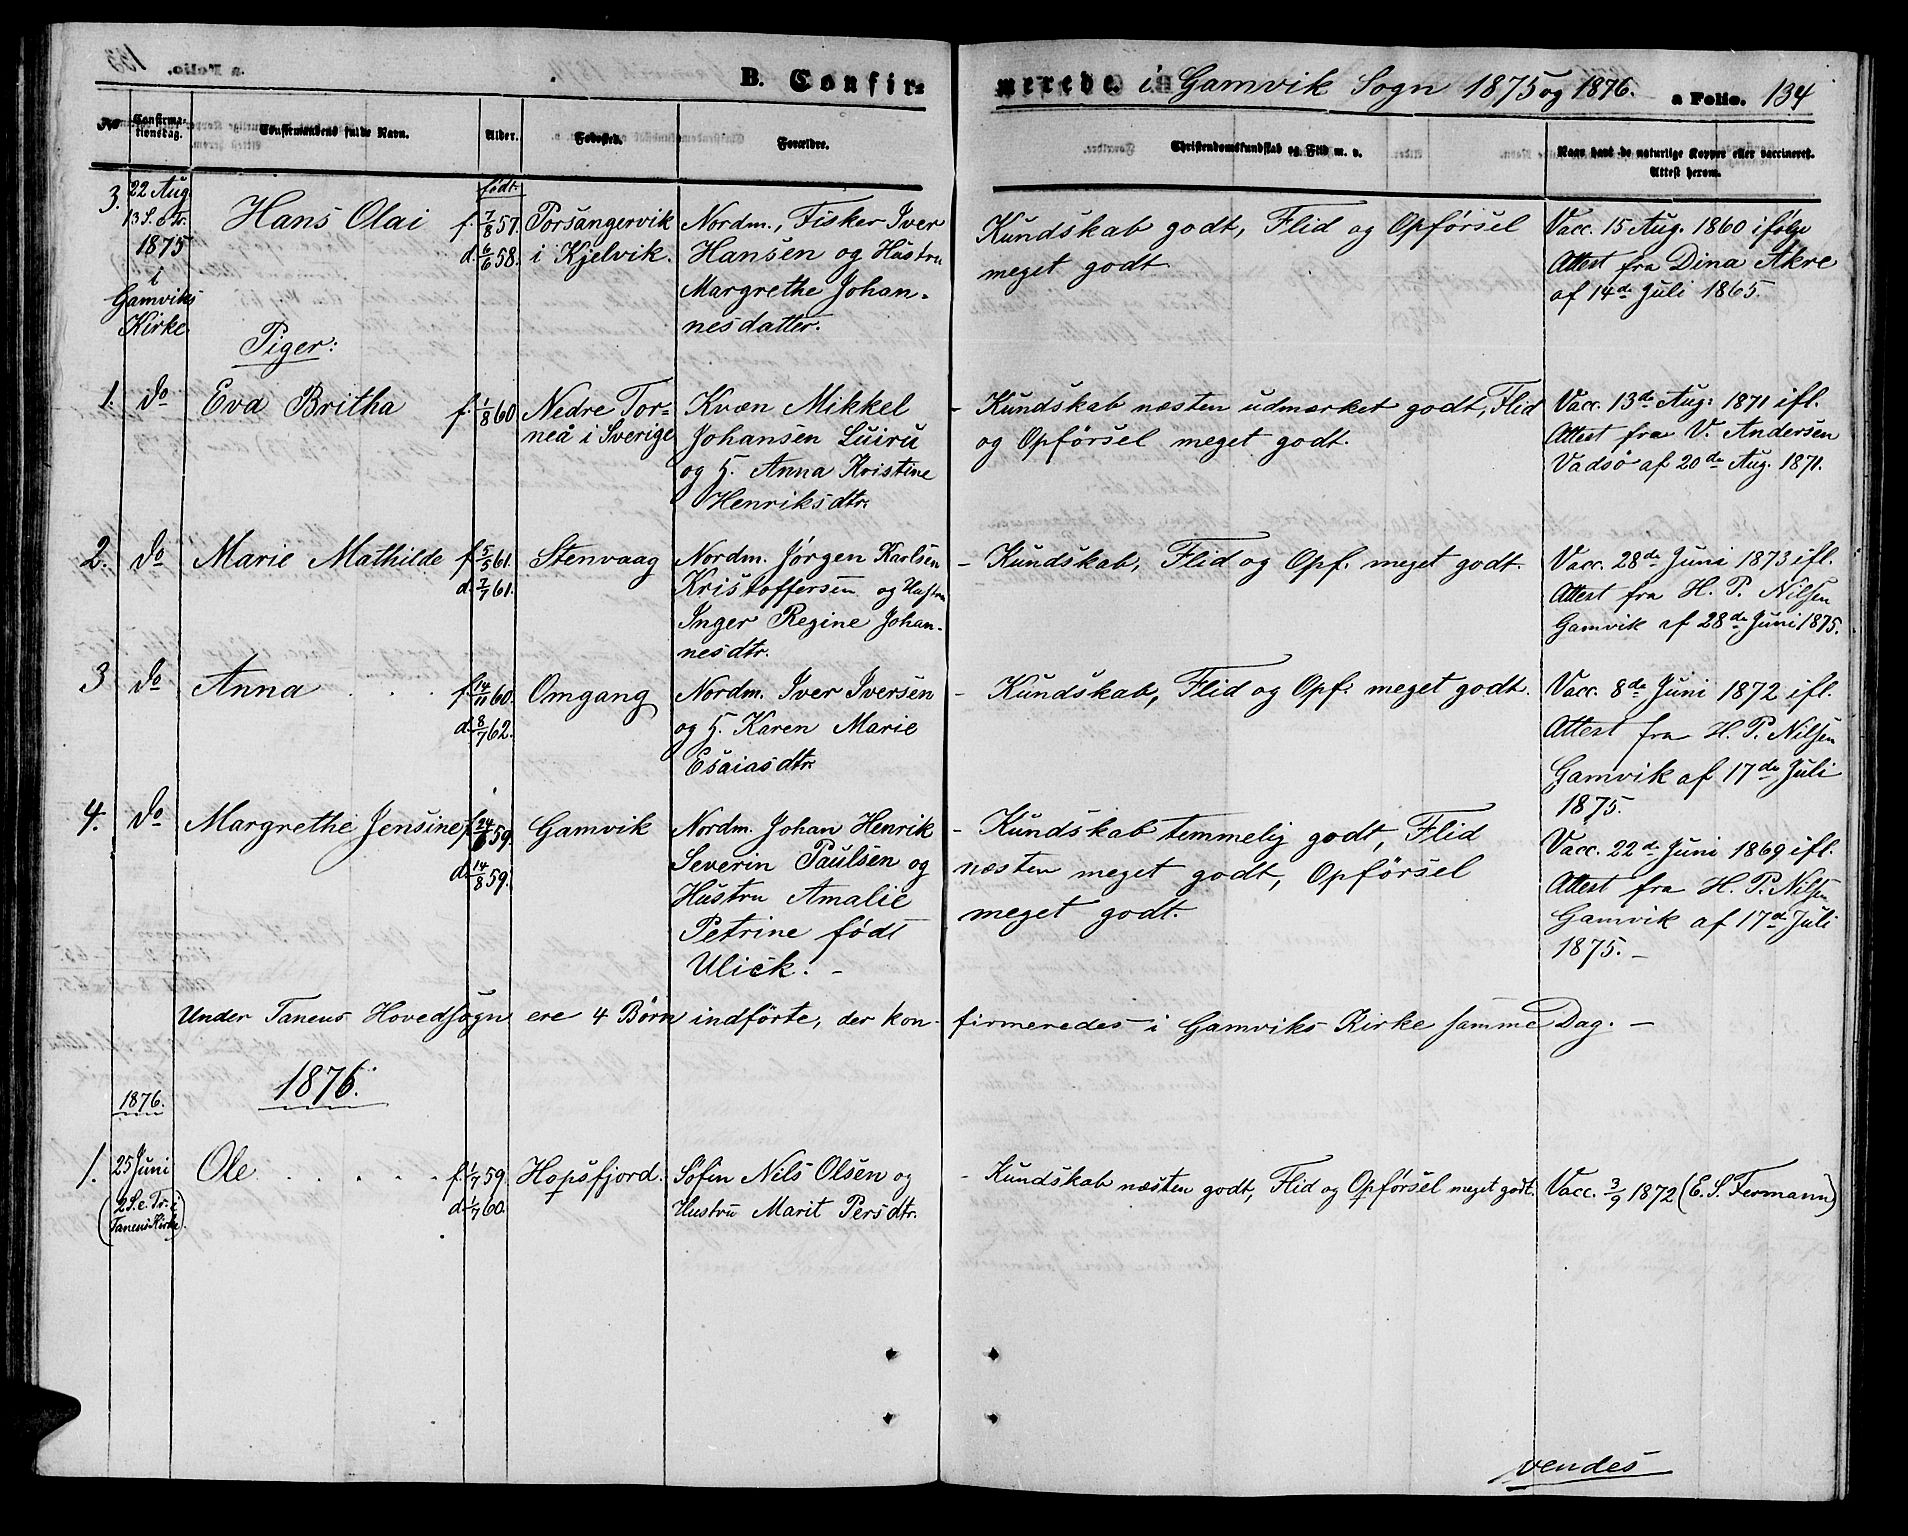 B. Confirmerede i Gamvik Sogn 1875 og 1876. a Folio. 134
No Confirmationsdag. Confirmandens fulde Navn. Alder. Fødested. Forældre. Christendomskundskab og Flid m. v. Naar havt de naturlige Kopper eller vaccineret. Attest herom.
3.
22 Aug
13 S. e. Tr.
1875
i
Gamviks
Kirke
Hans Olai
født
f. 7/8 57.
d. 6/6 58.
Porsangervik
i Kjelvik.
Nordm., Fisker Iver
Hansen og Hustru
Margrethe Johan-
nesdatter.
Kundskab godt, Flid og Opførsel
meget godt.
Vacc. 15 Aug. 1860 ifølge
Attest fra Dina Akre
af 14de Juli 1865.
Piger:
1. do Eva Britha f. 1/8 60
Nedre Tor=
neå i Sverige
Kvæn Mikkel
Johansen Luiru
og H. Anna Kristine
Henriksdtr.
- Kundskab næsten udmærket godt, Flid
og Opførsel meget godt.
Vacc. 13de Aug. 1871 ifl.
Attest fra V. Andersen
Vadsø af 20de Aug. 1871.
2. do Marie Mathilde f. 5/5 61.
d. 7/7 61.
Stenvaag
Nordm. Jørgen Karlsen
Kristoffersen og Hustru
Inger Regine Johan-
nesdtr.
- Kundskab, Flid og Opf. meget godt.
Vacc. 28de Juni 1873 ifl.
Attest fra H. P. Nilsen
Gamvik af 28de Juni 1875.
3 do Anna . . . f. 14/11 60.
d. 8/7 62.
Omgang
Nordm. Iver Iversen
og H. Karen Marie
Esaiasdtr.
- Kundskab, Flid og Opf. meget godt.
Vacc. 8de Juni 1872 ifl.
Attest fra H. P. Nilsen
Gamvik af 17de Juli
1875.
4. do Margrethe Jensine f. 24/6 59.
d. 14/8 59.
Gamvik
Nordm. Johan Henrik
Severin Paulsen og
Hustru Amalie
Petrine født
Ulick. -
- Kundskab temmelig godt, Flid
næsten meget godt, Opførsel
meget godt.
Vacc. 22de Juni 1869 ifl.
Attest fra H. P. Nilsen
Gamvik af 17de Juli
1875. -
Under Tanens Hovedsogn ere 4 Børn indførte, der kon- firmeredes i Gamviks Kirke samme Dag. -
1876.
1876.
1.
25 Juni
(2 S. e. Tr. i
Tanens Kirke).
Ole . . . . .
f. 1/7 59.
d. 1/7 60.
Hopsfjord.
Søfin Nils Olsen og
Hustru Marit Persdtr.
- Kundskab næsten godt, Flid og Opførsel meget godt.
Vacc. 3/9 1872 (E. S. Fermann)
vendes